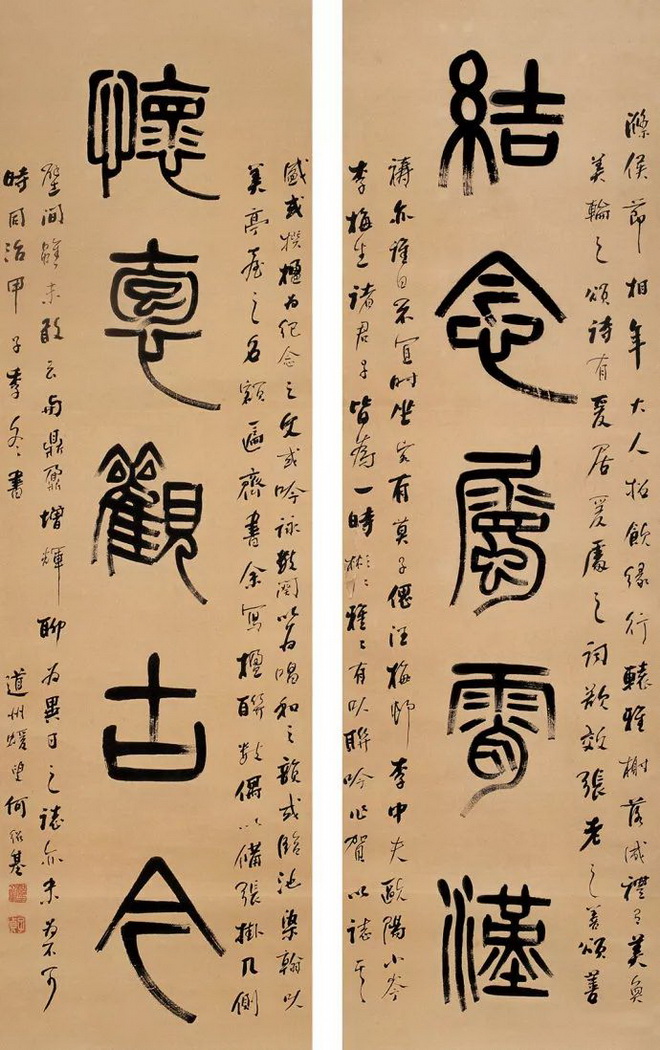 滌侯節相年大人招飲緣行轅雅榭落成禮有美奐
美輪之頌詩有爰居爰處之詞敬效張老之善頌善
結念屬霄漢
禱亦誰曰不宜時坐客有莫子偲汪梅邨李中夫歐陽小岑
李梅生諸君子皆為一時彬彬雅雅有以聯吟作賀以誌其
盛或撰楹為紀念之文或吟詠數闋以為唱和之韻或臨池染翰以
美亭臺之名額遍齋書余寫楹聯數偶以備張掛几側
懷袌觀古今
壁間雖未敢云與鼎鼐增輝聊為異日之誌亦未為不可
時同治甲子季冬書
道州蝯叟何紹基